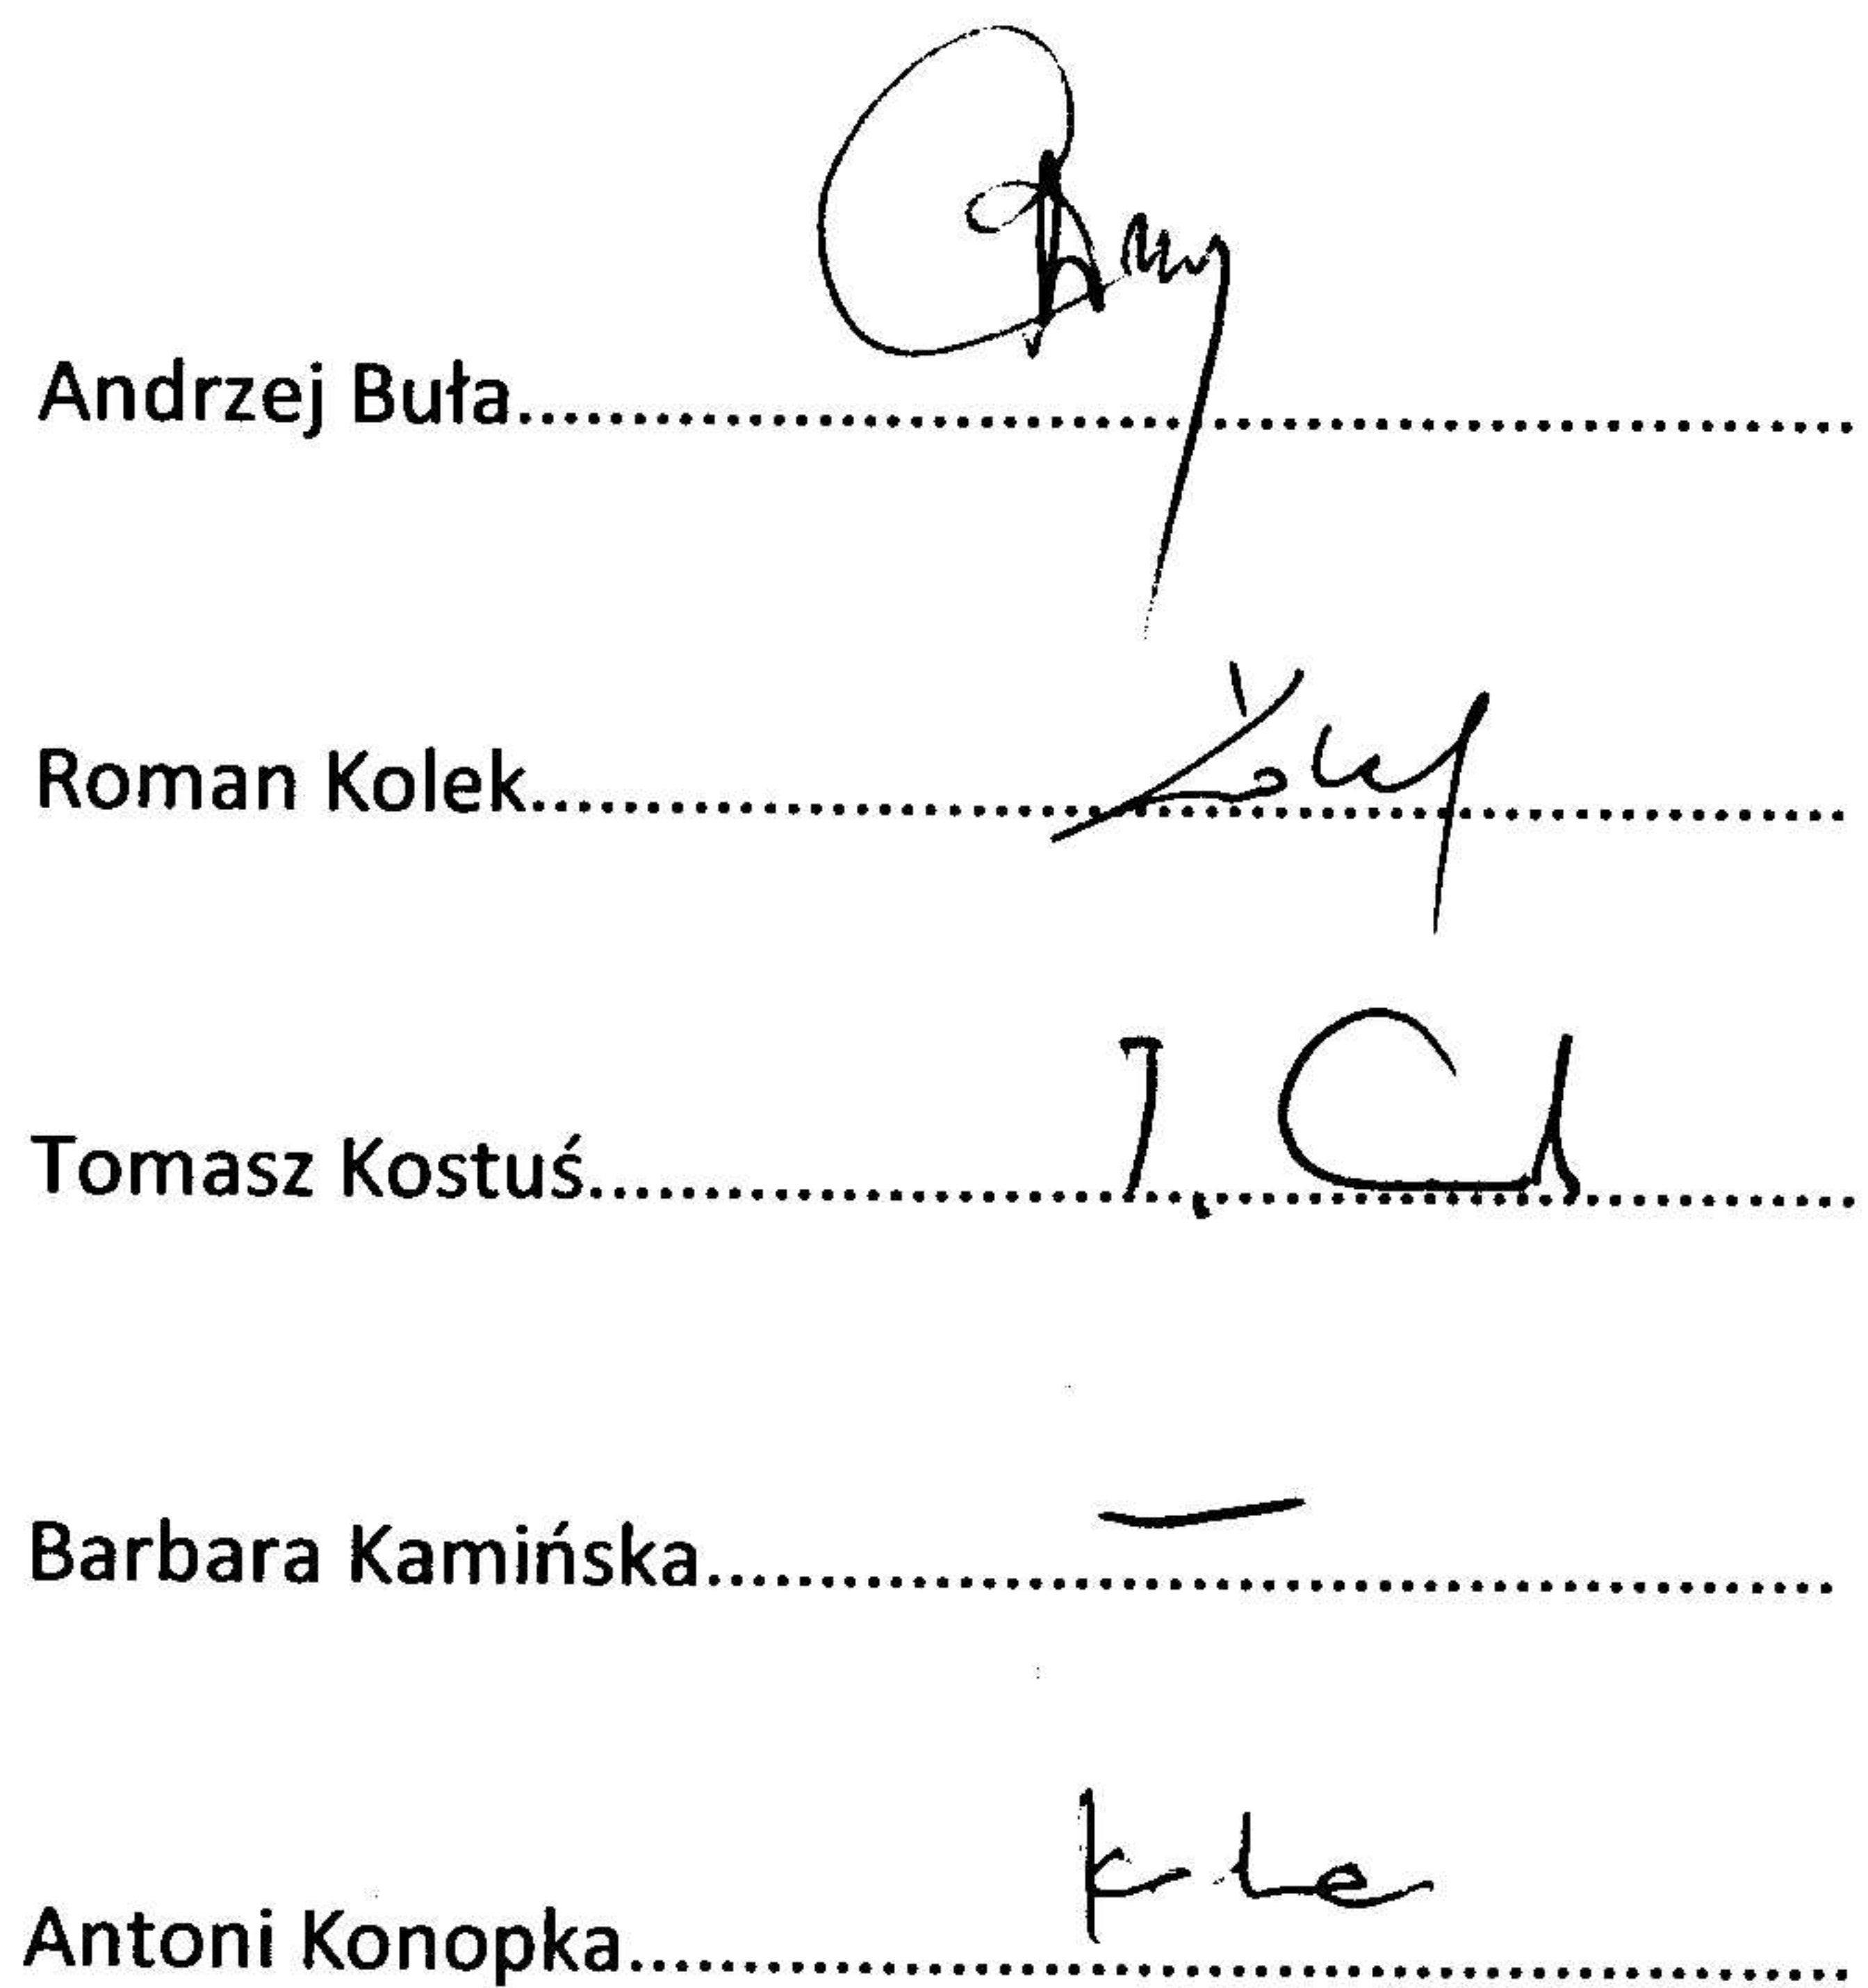 Andrzej Buła..........................................................
Roman Kolek..........................................................
Tomasz Kostuś..........................................................
Barbara Kamińska..........................................................
Antoni Konopka..........................................................